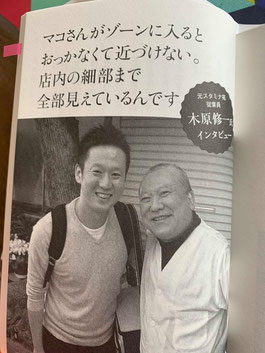 マコさんがゾーンに入ると
おっかなくて近づけない。
店内の細部まで
全部見えているんです
元スタミナ苑
従業員
木原修一
インタビュー